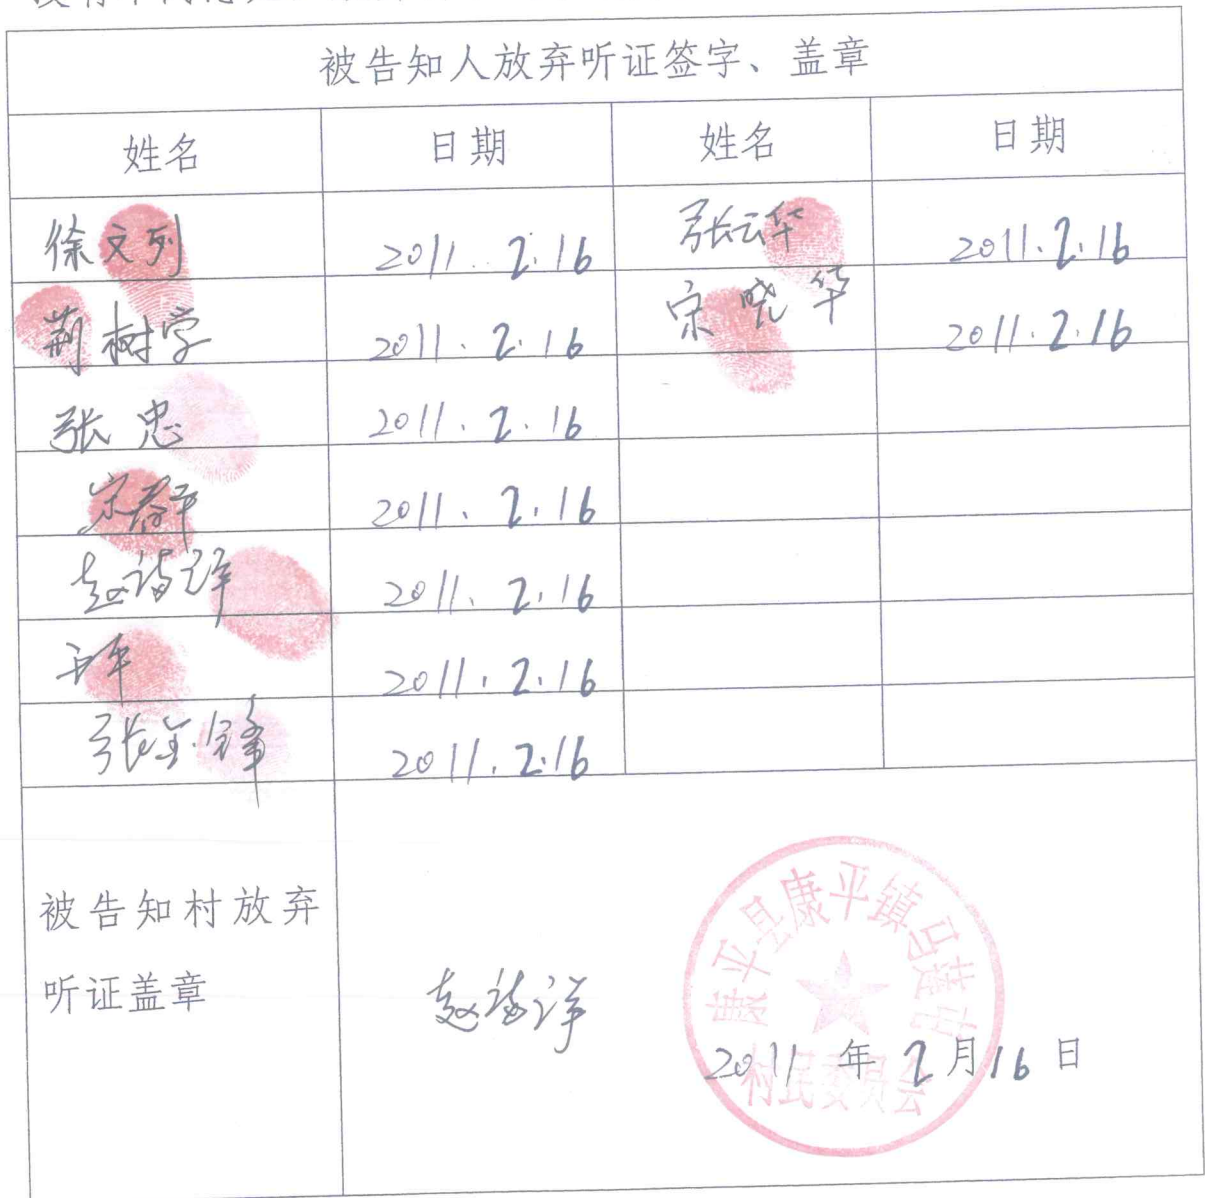 被告知人放弃听证签字、盖章
姓名 日期 姓名 日期
徐文列 2011.2.16 张云华 2011.2.16
荆树学 2011.2.16 宋晓华 2011.2.16
张忠 2011.2.16
2011.2.16
2011.2.16
2011.2.16
张金锋 2011.2.16
被告知村放弃
听证盖章
康平县康平镇马莲屯
村民委员会
2011年2月16日